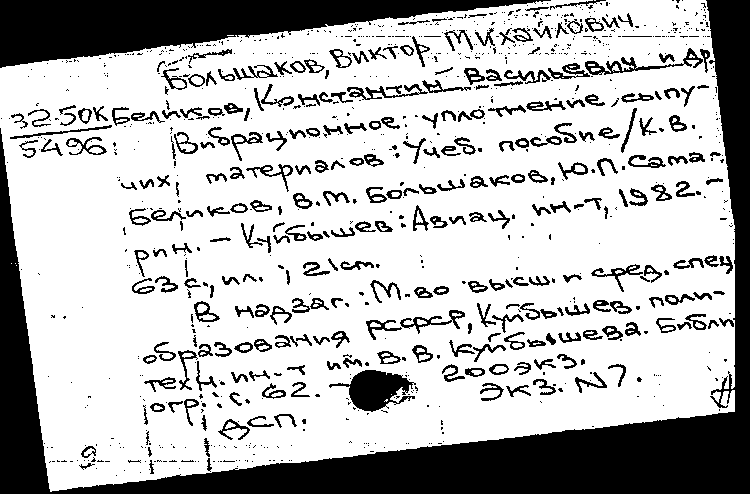 Большаков, Виктор Михайлович
32-50К Беликов, Константин Васильевич и др.
5496: Вибрационное уплотнение сыпу-
чих материалов: Учеб. пособие/К.В.
Беликов, В.М. Большаков, Ю.П. Сама-
рин. - Куйбышев: Авиац. ин-т, 1982. -
63 с., ил.; 21 см.
В надзаг.: М-во высш. и сред. спец.
образования РСФСР, Куйбышев. поли-
техн. ин-т им. В.В. Куйбышева. Библи
огр.: с. 62. - 200 экз.
ДСП. Экз. N7.
9